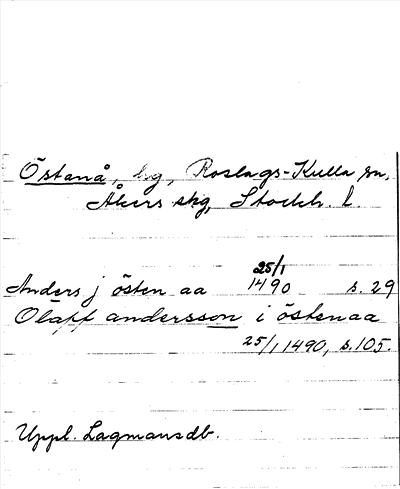 Östanå, hg, Roslags-Kulla sn,
Åkers skg, Stockh. l.
25/1
Anders j östen aa 1490 s. 29
Olaff andersson i östenaa
25/1 1490, s. 105.
Uppl. Lagmansdb.